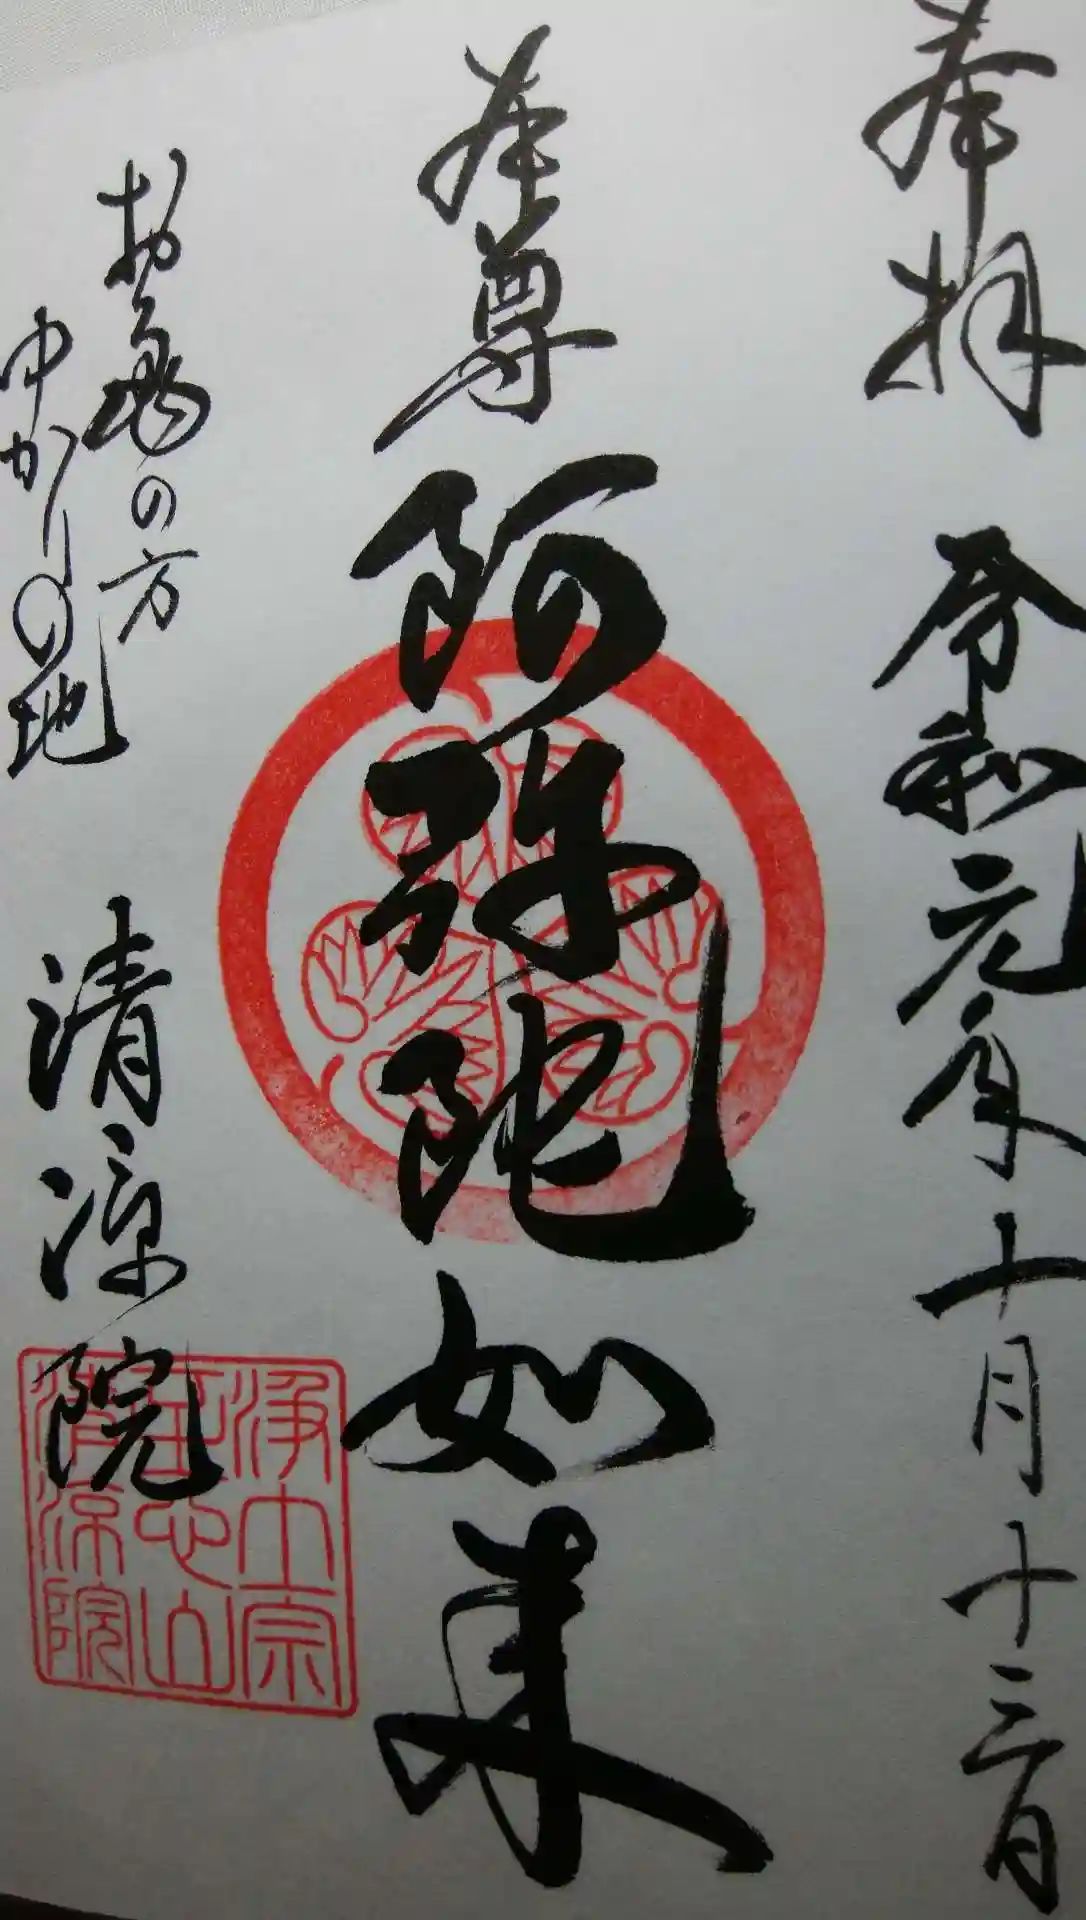 奉拝
令和元年十月十三日
本尊
阿弥陀如来
お亀の方
ゆかりの地
清涼院
浄土宗
正心山
清涼院